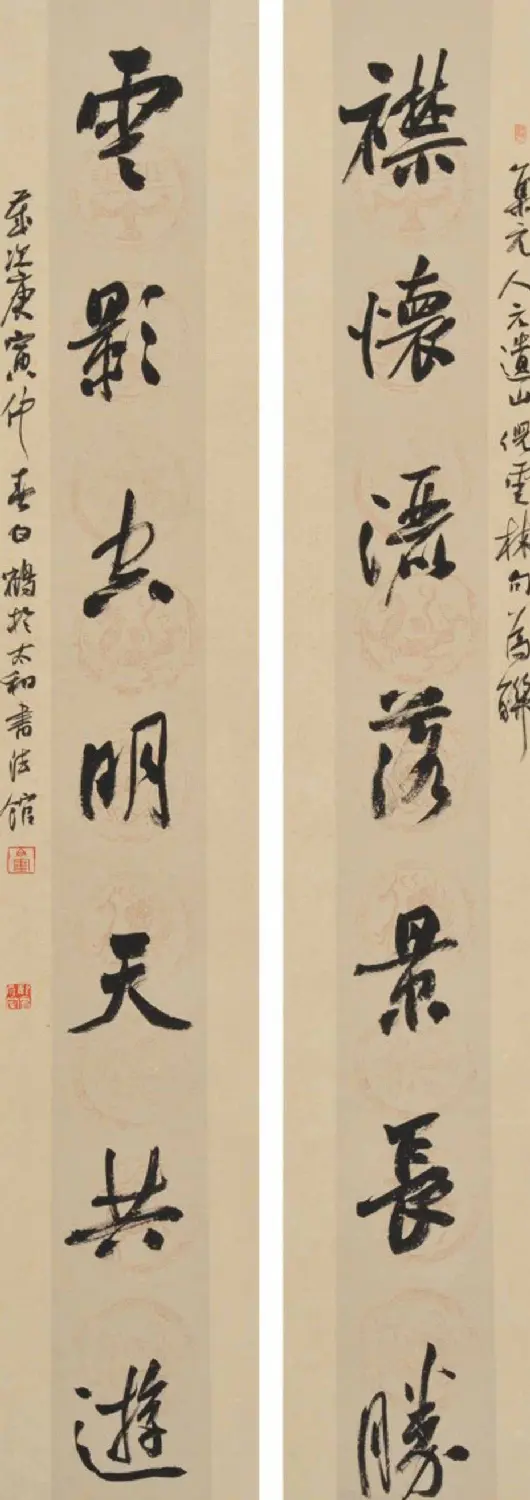 集元人元遺山倪雲林句為聯
襟懷灑落景長勝
雲影空明天共遊
歲次庚寅仲春白鶴於太和書法館